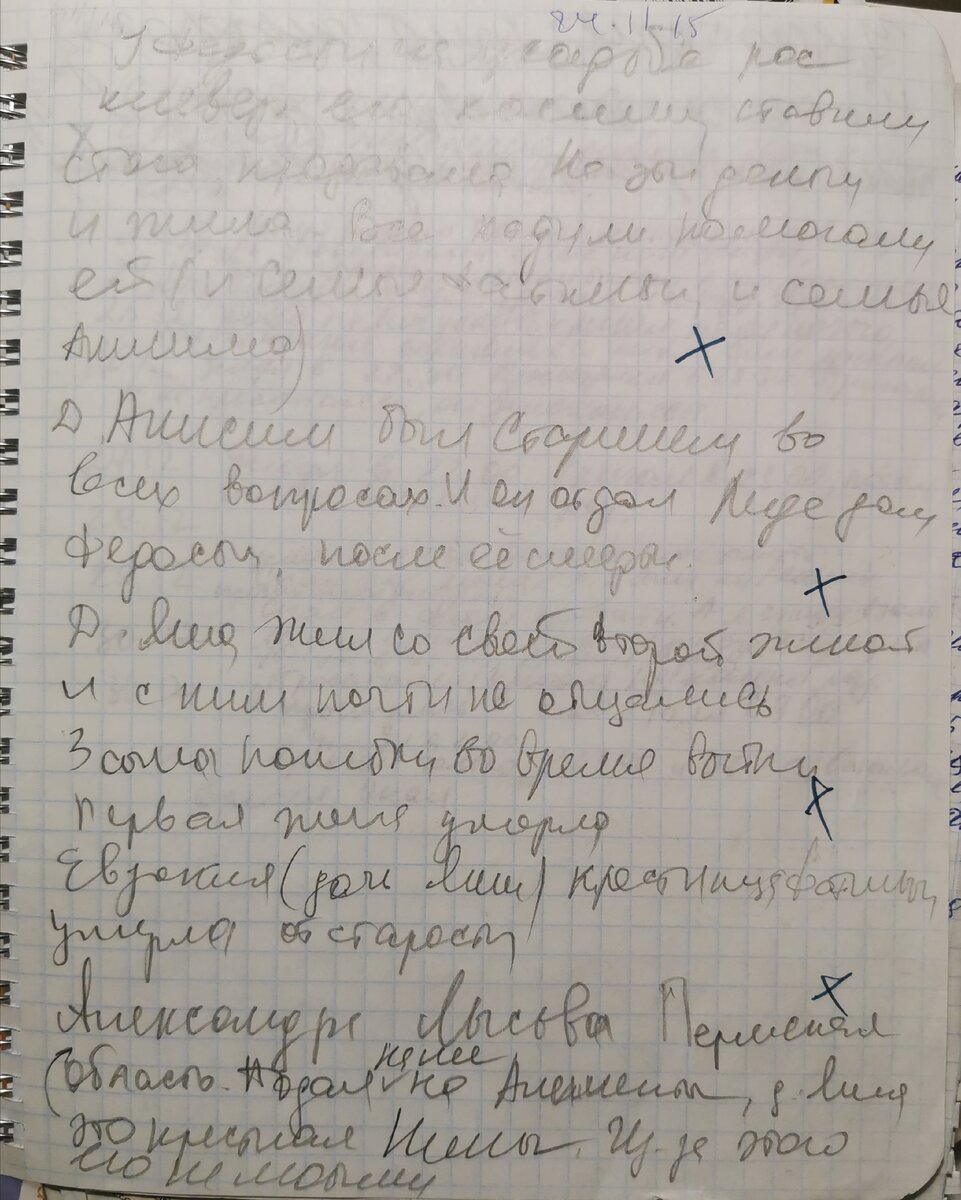 24.11.15
У Федосьи на усадьбе рос
клевер его косили, ставили
стога, продавала. На эти деньги
и жила. Все ходили помогали
ей (и семья и семья
Анисима)
Д. Анисим был старшим во
всех вопросах. И он отдал Лиде дом
Федосьи, после её смерти.
Д. Яша жил со своей второй женой
и с ним почти не общались
3 сына погибли во время войны
Первая жена умерла
Евдокия (дочь Яши) крестница
умерла от старости
Александра Лысьва Пермская
(область. подал на Алименты, д. Яша
это крестная Нины. Из за этого